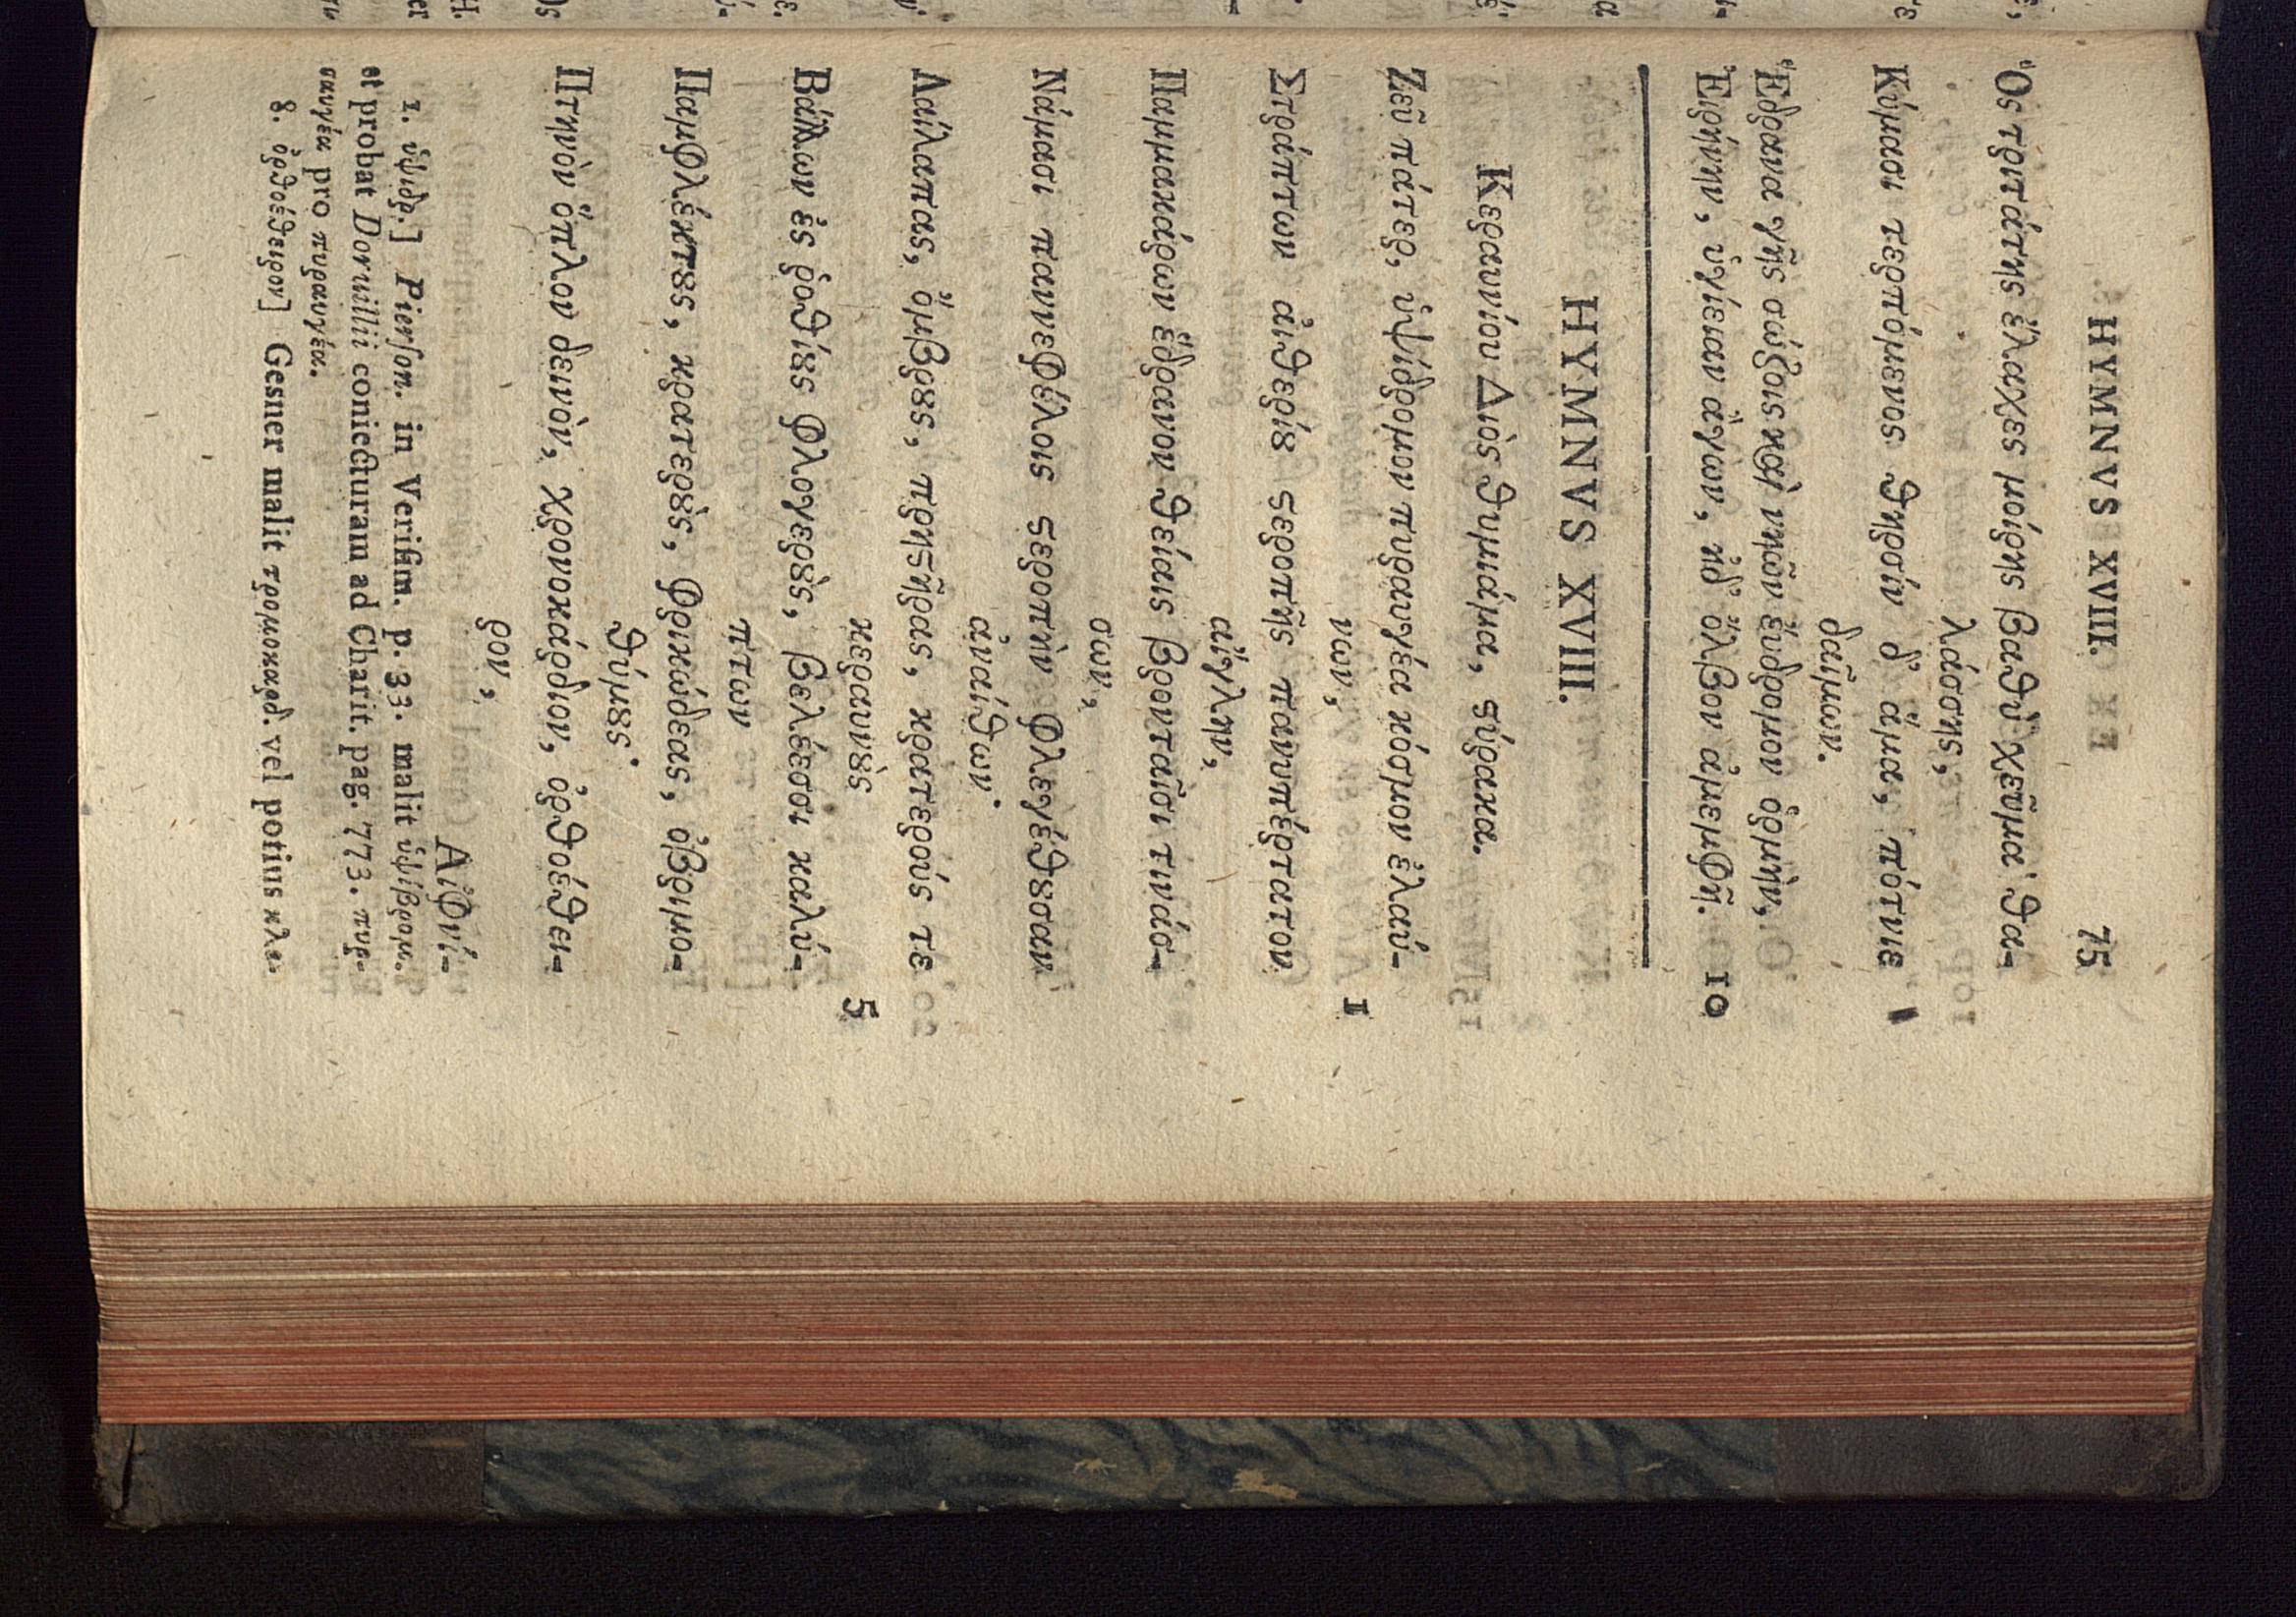 HYMNVS XVIII. 75
Ὃς τριτάτης ἔλαχες μοίρης βαθὺ χεῦμα θα-
λάσσης,
Κύμασι τερπόμενος θηρσίν δ᾽ ἅμα, πότνιε
δαῖμων.
Ἕδρανα γῆς σώζοις καὶ νηῶν ἔυδρομον ὁρμὴν,
Εἰρήνην, ὑγίειαν ἄγων, ἠδ᾽ ὄλβον ἀμεμφῆ. 10
HYMNVS XVIIII.
Κεραυνίου Διὸς θυμιάμα, ϛύρακα.
Ζεῦ πάτερ, ὑψίδρομον πυραυγέα κόσμον ἐλαύ-
νων, 1
Στράπτων αἰθερίȣ ϛεροπῆς πανυπέρτατον
αἴγλην,
Παμμακάρων ἕδρανον θείαις βρονταῖσι τινάσ-
σων,
Νάμασι παννεφέλοις ϛεροπὴν φλεγέθȣσαν
ἀναίθων·
Λαίλαπας, ὄμβρȣς, πρηϛῆρας, κρατερούς τε
κεραυνȣ̀ς 5
Βάλλων ἐς ῥοθίȣς φλογερȣ̀ς, βελέεσσι καλύ-
πτων
Παμφλέκτȣς, κρατερȣ̀ς, φρικώδεας, ὀβριμο-
θύμȣς·
Πτηνὸν ὅπλον δεινὸν, χρονοκάρδιον, ὀρθοέθει-
ρον,
Αἰφνί-
1. ὑψιδρ.] Pierson. in Verisim. p. 33. malit ὑψίβρομ.
et probat Doruillii coniecturam ad Charit. pag. 773. πυρ-
σαυγέα pro πυραυγέα.
8. ὀρθοέθειρον] Gesner malit τρομοκαρδ. vel potius κλο-